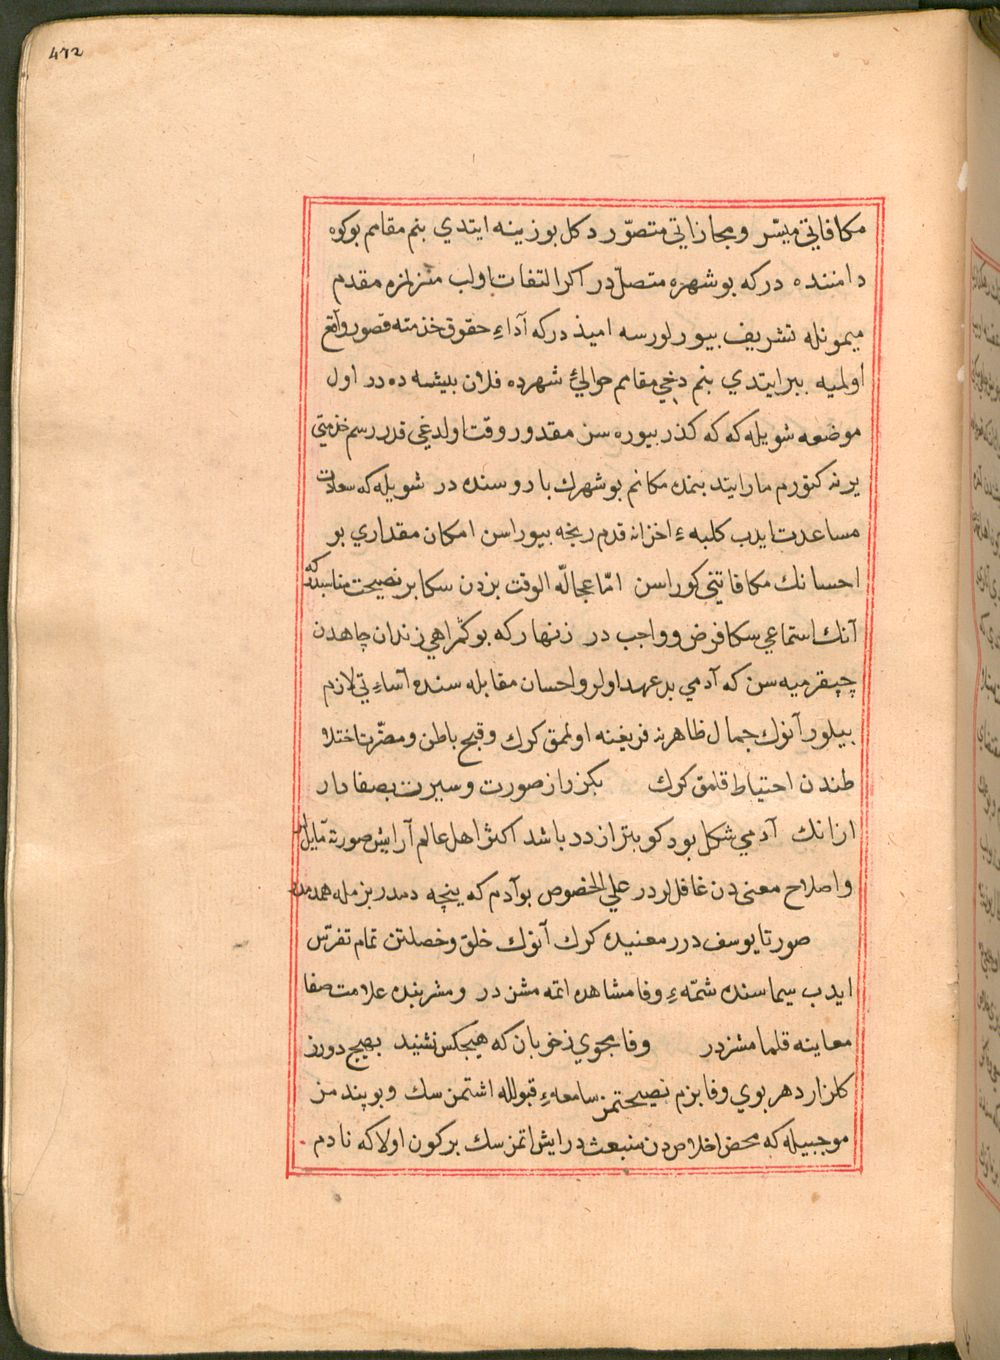 472
مكافاتي ميسّر ومجازاتي متصوّر دكل بوزينه ايتدي بنم مقامم بوكوه
دامننده در كه بو شهره متصلدر اكر التفات اولب منزلمزه مقدم
ميمونله تشريف بيورلورسه اميذدر كه آداءِ حقوق خذمته قصور واقع
اولميه ببر ايتدي بنم دخي مقامم حوالئ شهرده فلان بيشه ده در اول
موضعه شويله كه كه كذر بيوره سن مقدور وقت اولدغي قدر رسم خذمتي
يرنه كتورم مار ايتدي بنمده مكانم بو شهرك باروسنده در شويله كه سعادت
مساعدت ايدب كلبهءِ اخزانه قدم رنجه بيوراسن امكان مقداري بو
احسانك مكافاتني كوراسن امّا عجالّه الوقت بزدن سكا بر نصيحت مناسبدركه
آنك استماعي سكا فرض و واجب در زنهار كه بو كمراهي زندان چاهدن
چيقرميه سن كه آدمي بدعهد اولر و احسان مقابله سنده آساءتي لازم
بيلور آنوك جمال ظاهرينه فريفته اولمق كرك و قبح باطن و مضرت اختلا
طندن احتياط قلمق كرك بكزر از صورت و سيرت بصفا دار
ازانك آدمي شكل بود كو بتر از دد باشد اكثر اهل عالم آرايش صورته مايللر
و اصلاح معنى دن غافللردر علي الخصوص بو آدم كه ينچه دمدر بزمله همدمدر
صورتا يوسف درر معنيده كرك آنوك خلق و خصلتن تمام تفرّس
ايدب سيماسنده شمّهءِ وفا مشاهده اتمه مشن در و مشربنده علامت صفا
معاينه قلمامشزدر وفا مجوي ز خوبان كه هيچكس نشنيد بهيج دور ز
كلزار دهر بوي وفا بزم نصيحتمز سامعهءِ قبولله اشتمن سك و بو پندمز
موجبيله كه محض اخلاص دن منبعثدر ايش اتمن سك بر كون اولا كه نادم